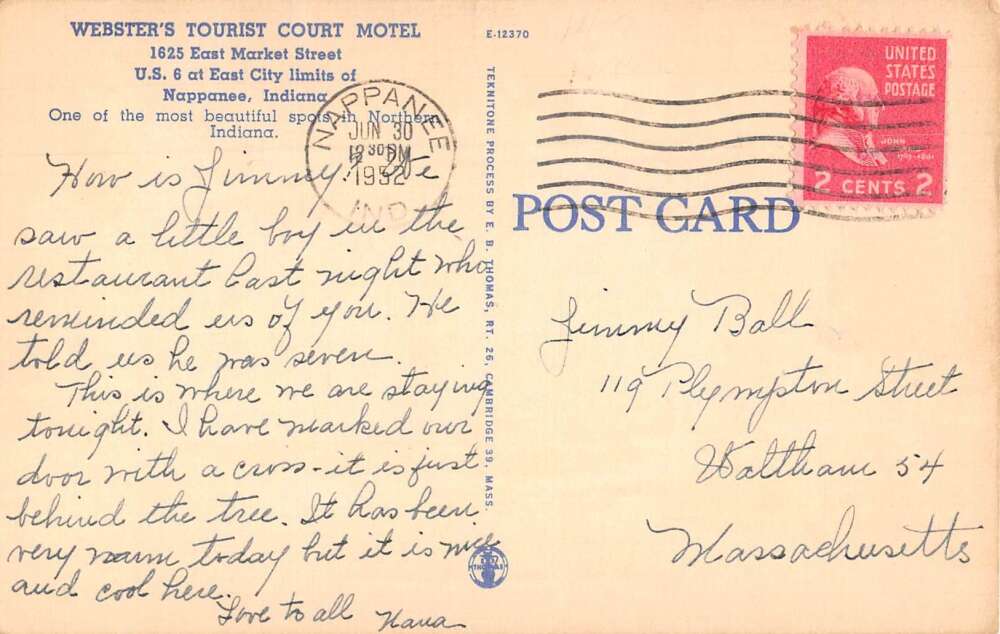 WEBSTER'S TOURIST COURT MOTEL
1625 East Market Street
U.S. 6 at East City limits of
Nappanee, Indiana
One of the most beautiful spots in Northern
Indiana.
How is Jimmy? We
saw a little boy in the
restaurant last night who
reminded us of you. He
told us he was seven.
This is where we are staying
tonight. I have marked our
door with a cross - it is just
behind the tree. It has been
very warm today but it is nice
and cool here.
Love to all Nana
E-12370
TEKNITONE PROCESS BY E. B. THOMAS, RT. 26, CAMBRIDGE 39, MASS.
THOMAS
NAPPANEE
JUN 30
12 30 PM
1952
IND.
UNITED
STATES
POSTAGE
JOHN
2 CENTS 2
POST CARD
Jimmy Ball
119 Plympton Street
Waltham 54
Massachusetts